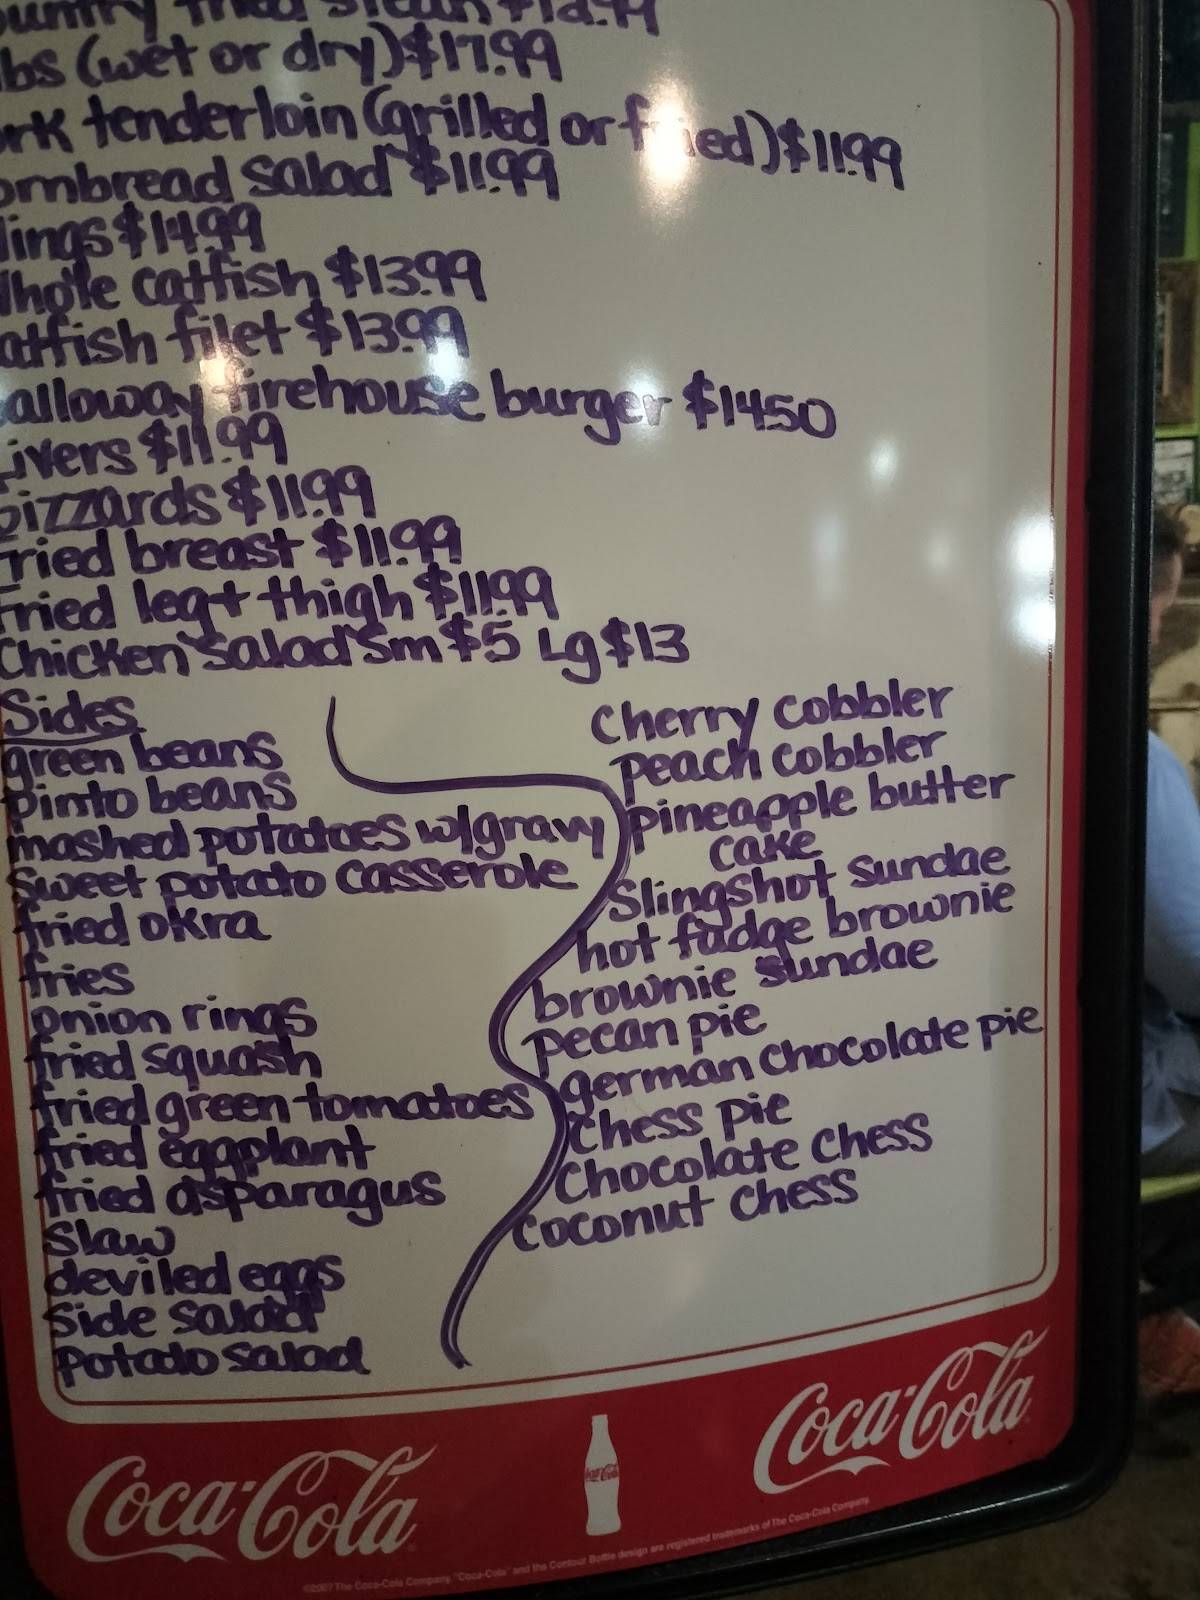 ountry fried steak $12.99
bs (wet or dry) $17.99
ork tenderloin (grilled or f ied) $11.99
ornbread salad $11.99
lings $14.99
Whole catfish $13.99
atfish filet $13.99
alloway firehouse burger $14.50
Livers $11.99
gizzards $11.99
Fried breast $11.99
Fried leg + thigh $11.99
Chicken Salad Sm $5 Lg $13
Sides
green beans
pinto beans
mashed potatoes w/gravy
Sweet potato casserole
fried okra
fries
onion rings
fried squash
fried green tomatoes
fried eggplant
fried asparagus
Slaw
deviled eggs
Side salad
Potato salad
Cherry cobbler
peach cobbler
pineapple butter
cake
Slingshot sundae
hot fudge brownie
brownie sundae
pecan pie
german chocolate pie
Chess pie
Chocolate chess
Coconut chess
Coca-Cola
Coca-Cola
Coca-Cola
©2007 The Coca-Cola Company. "Coca-Cola" and the Contour Bottle design are registered trademarks of The Coca-Cola Company.